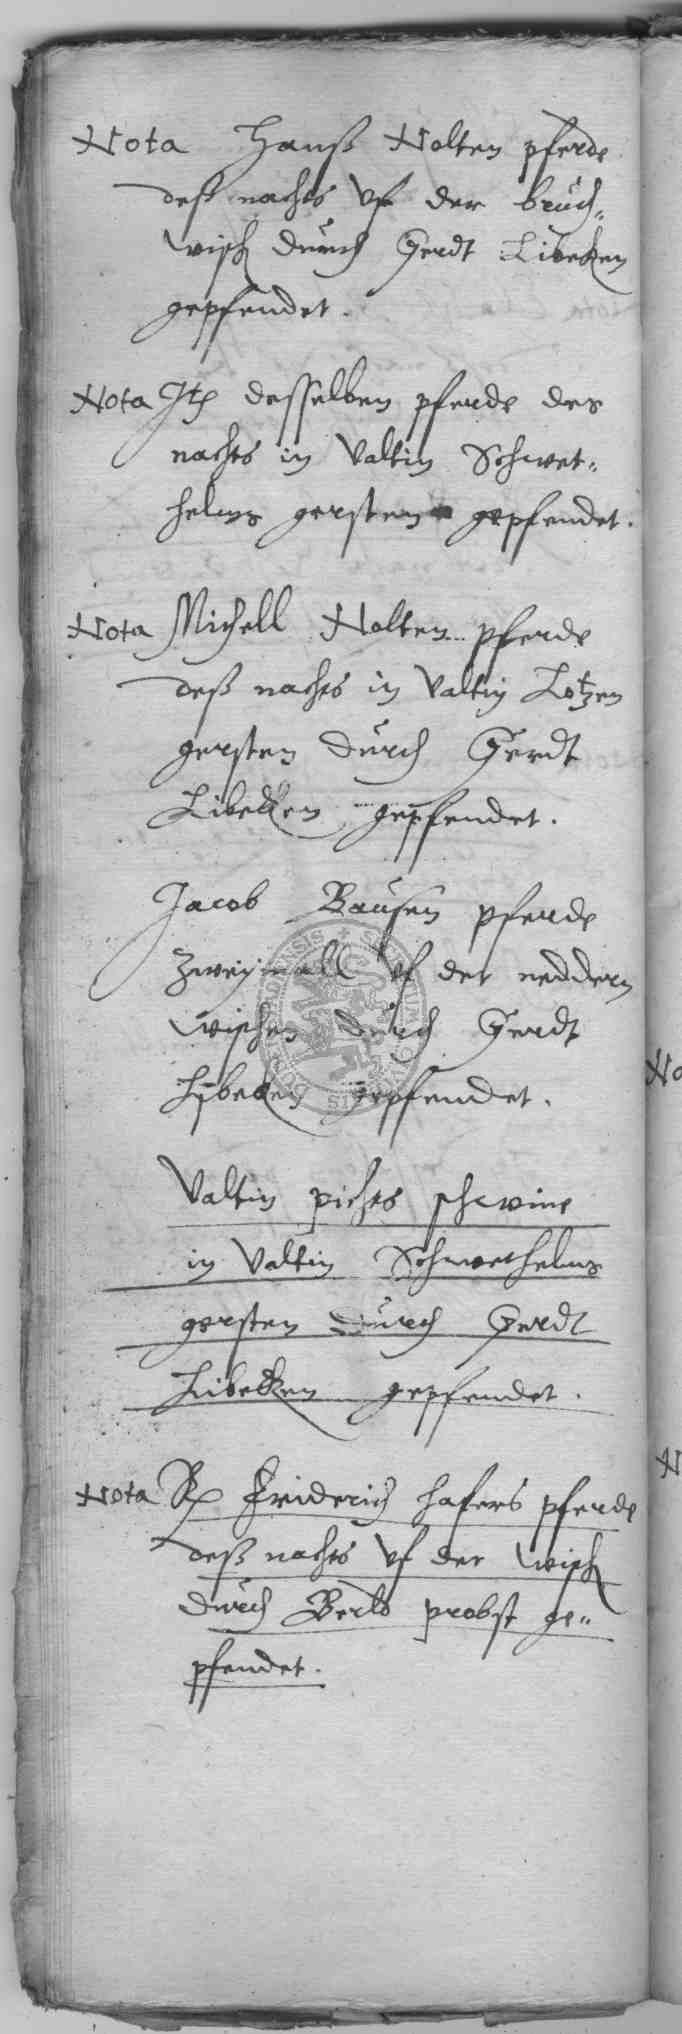 Nota Hanß Nolten pferde
deß nachts vf der bruch„
wisch durch Gerdt Libeken
gepfendet.
Nota Itz desselben pferde des
nachts in Valtin Schwet„
helms gersten gepfendet.
Nota Michell Nolten pferde
deß nachts in Valtin Lotzen
gersten durch Gerdt
Libekken gepfendet.
Jacob Bausen pferde
zweymall vf der neddern
wischen durch Gerdt
Lybeken gepfendet.
Valtin pichts schwine
in Valtin Schwethelms
gersten durch Gerdt
Libekken gepfendet.
Nota Friderich hafers pferde
deß nachts vf der wisch
durch Berlt probst ge„
pfendet.
No
N